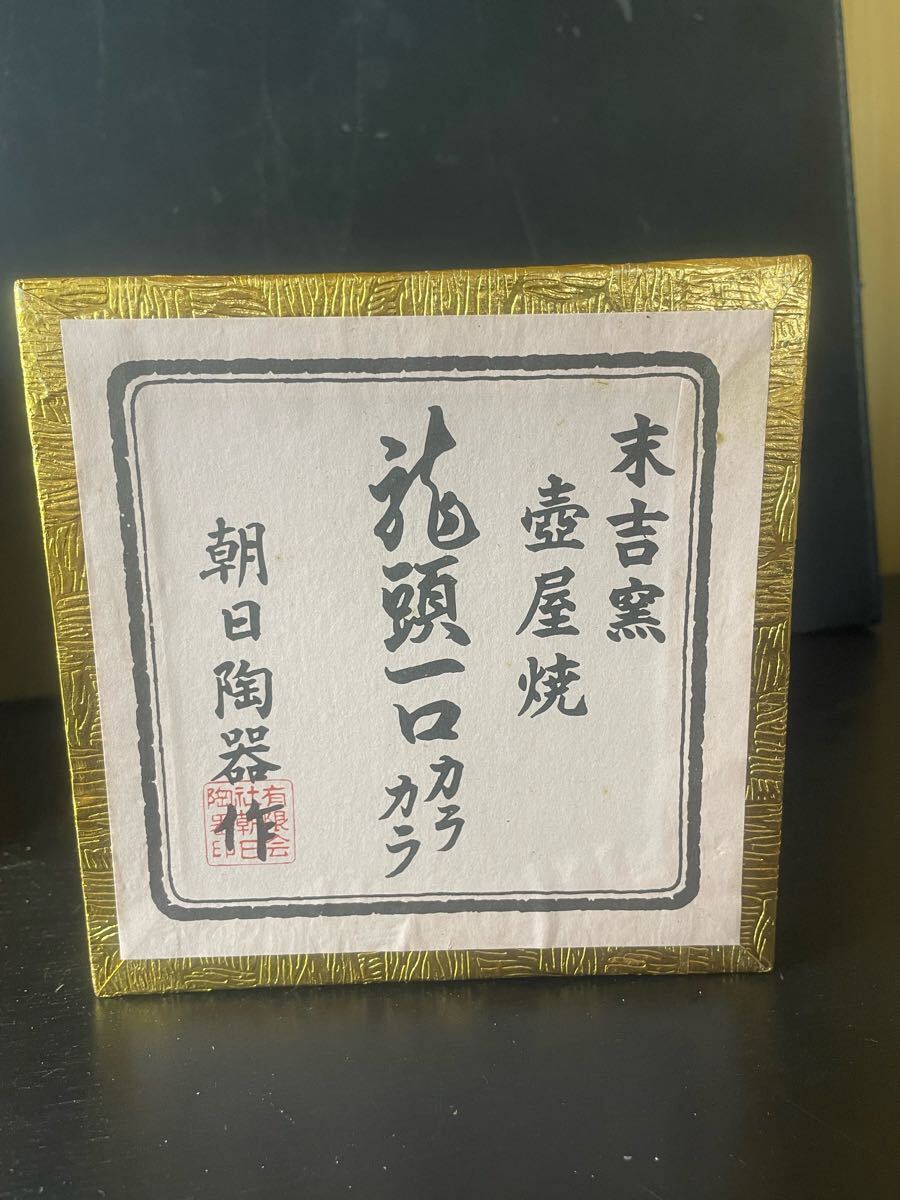 末吉窯
壺屋焼
龍頭一口カラカラ
朝日陶器作
有限会社朝日陶器印